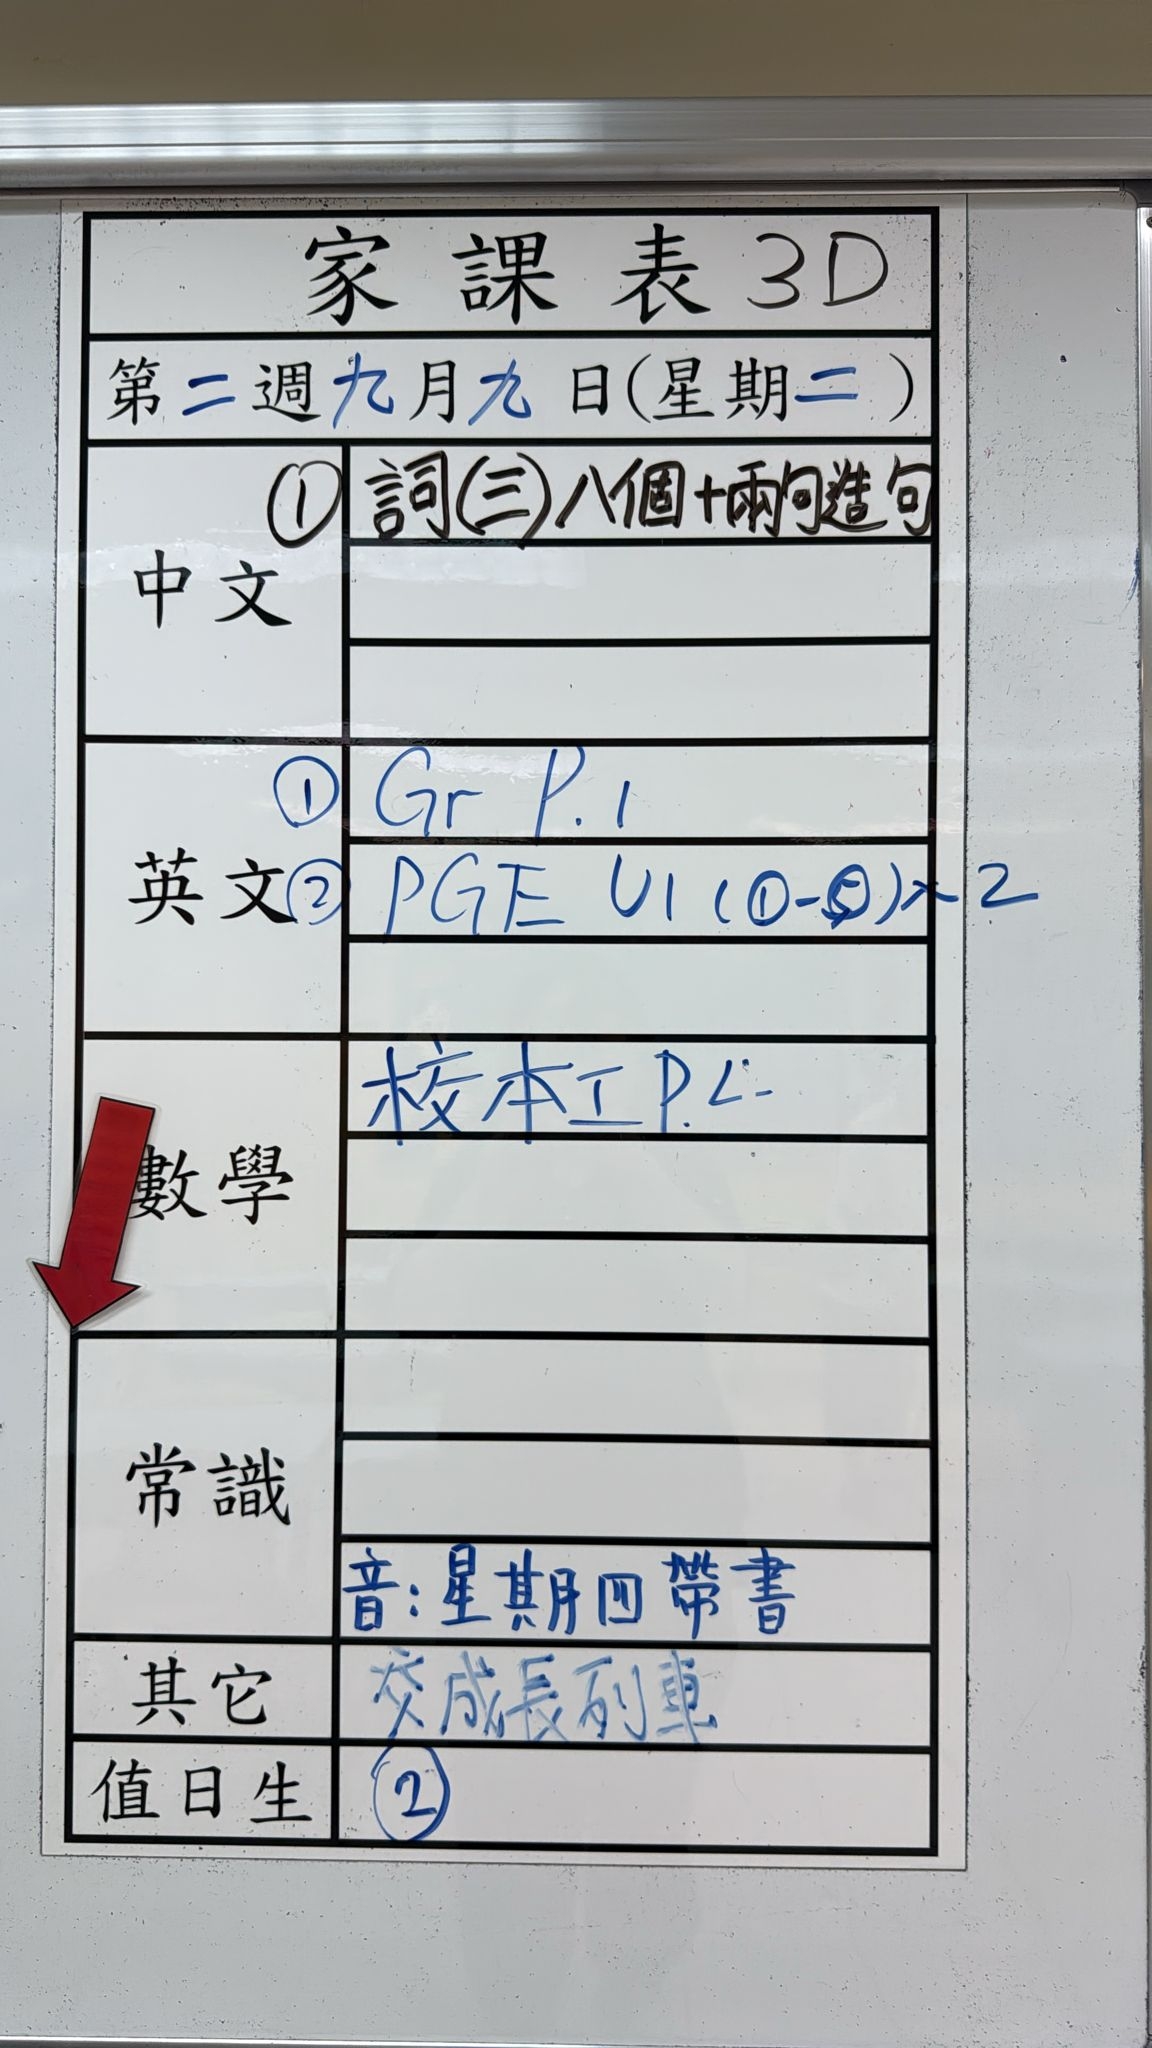 家課表 3D
第二週九月九日(星期二)
中文
① 詞(三)八個+兩句造句
英文
① Gr P.1
② PGE U1 (①-⑤)×2
數學
校本工 P.
常識
音:星期四帶書
其它
交成長列車
值日生
②